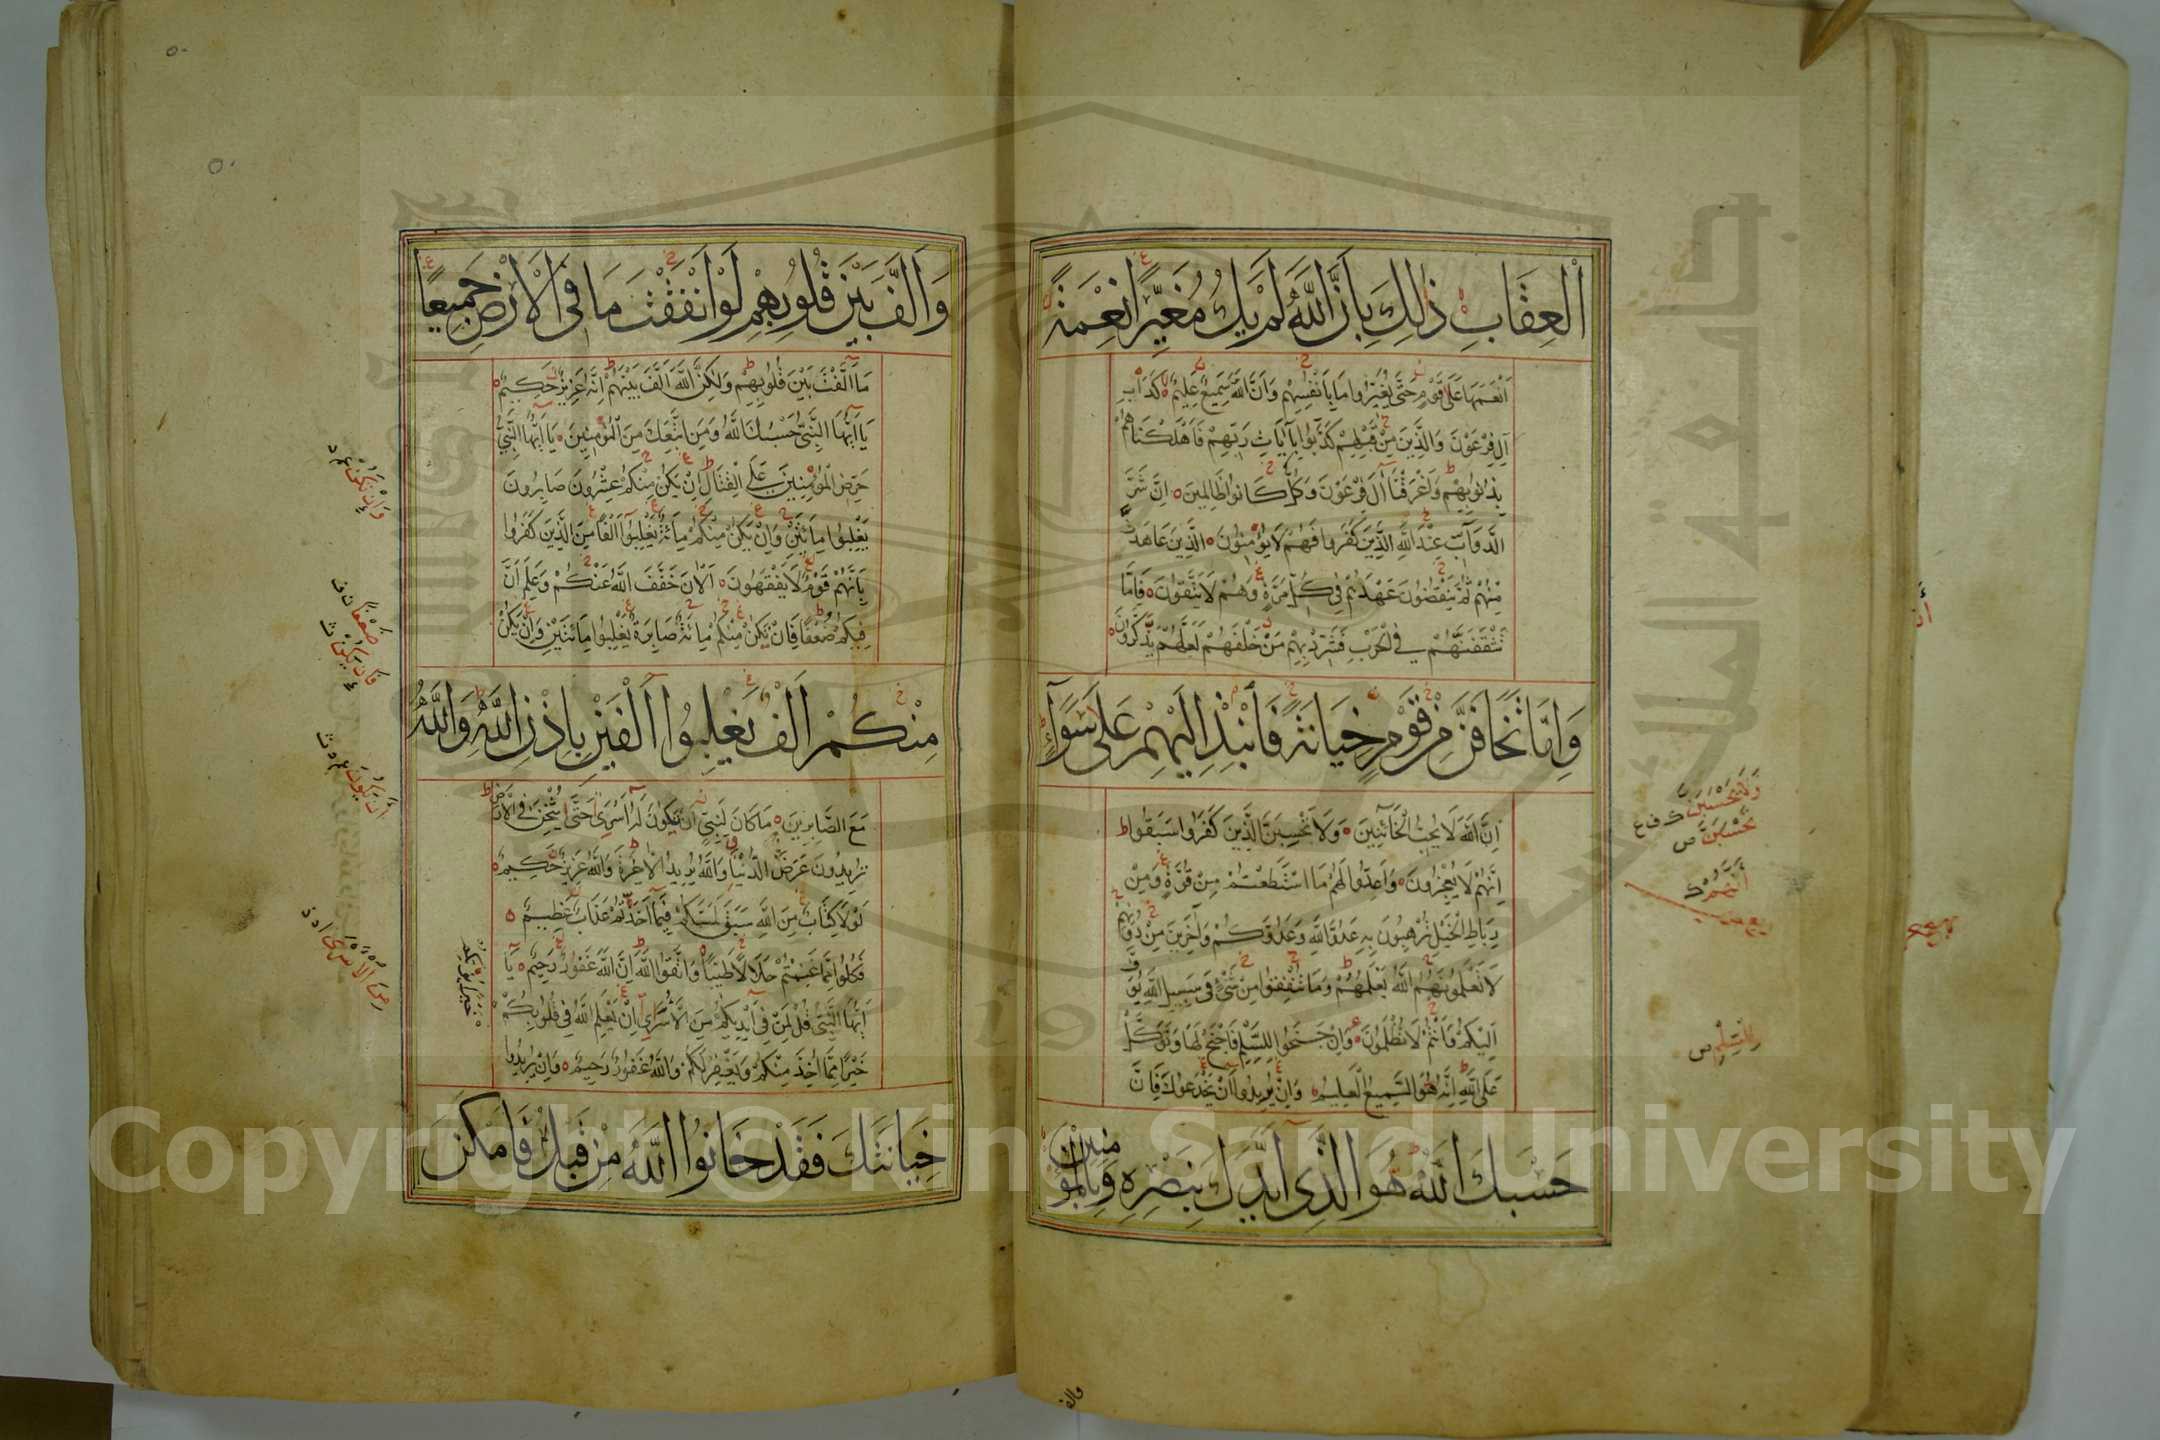 الْعِقَابِ ذٰلِكَ بِاَنَّ اللّٰهَ لَمْ يَكُ مُغَيِّرًا نِعْمَةً
اَنْعَمَهَا عَلٰى قَوْمٍ حَتّٰى يُغَيِّرُوا مَا بِاَنْفُسِهِمْ وَاَنَّ اللّٰهَ سَمِيعٌ عَلِيمٌ كَدَاْبِ
اٰلِ فِرْعَوْنَ وَالَّذِينَ مِنْ قَبْلِهِمْ كَذَّبُوا بِاٰيَاتِ رَبِّهِمْ فَاَهْلَكْنَاهُمْ
بِذُنُوبِهِمْ وَاَغْرَقْنَا اٰلَ فِرْعَوْنَ وَكُلٌّ كَانُوا ظَالِمِينَ اِنَّ شَرَّ
الدَّوَابِّ عِنْدَ اللّٰهِ الَّذِينَ كَفَرُوا فَهُمْ لَا يُؤْمِنُونَ الَّذِينَ عَاهَدْتَ
مِنْهُمْ ثُمَّ يَنْقُضُونَ عَهْدَهُمْ فِي كُلِّ مَرَّةٍ وَهُمْ لَا يَتَّقُونَ فَاِمَّا
تَثْقَفَنَّهُمْ فِي الْحَرْبِ فَشَرِّدْ بِهِمْ مَنْ خَلْفَهُمْ لَعَلَّهُمْ يَذَّكَّرُونَ
وَاِمَّا تَخَافَنَّ مِنْ قَوْمٍ خِيَانَةً فَانْبِذْ اِلَيْهِمْ عَلٰى سَوَاءٍ
اِنَّ اللّٰهَ لَا يُحِبُّ الْخَائِنِينَ وَلَا تَحْسِبَنَّ الَّذِينَ كَفَرُوا سَبَقُوا
اِنَّهُمْ لَا يُعْجِزُونَ وَاَعِدُّوا لَهُمْ مَا اسْتَطَعْتُمْ مِنْ قُوَّةٍ وَمِنْ
رِبَاطِ الْخَيْلِ تُرْهِبُونَ بِهِ عَدُوَّ اللّٰهِ وَعَدُوَّكُمْ وَاٰخَرِينَ مِنْ دُونِهِمْ
لَا تَعْلَمُونَهُمْ اللّٰهُ يَعْلَمُهُمْ وَمَا تُنْفِقُوا مِنْ شَيْءٍ فِي سَبِيلِ اللّٰهِ يُوَفَّ
اِلَيْكُمْ وَاَنْتُمْ لَا تُظْلَمُونَ وَاِنْ جَنَحُوا لِلسَّلْمِ فَاجْنَحْ لَهَا وَتَوَكَّلْ
عَلَى اللّٰهِ اِنَّهُ هُوَ السَّمِيعُ الْعَلِيمُ وَاِنْ يُرِيدُوا اَنْ يَخْدَعُوكَ فَاِنَّ
حَسْبَكَ اللّٰهُ هُوَ الَّذِي اَيَّدَكَ بِنَصْرِهِ وَبِالْمُؤْمِنِينَ
وَلَا يَحْسَبَنَّ ك ف ع
تَحْسَبَنَّ ص
اَنَّهُمْ د
لِلسِّلْمِ ص
والف
وَاَلَّفَ بَيْنَ قُلُوبِهِمْ لَوْ اَنْفَقْتَ مَا فِي الْاَرْضِ جَمِيعًا
مَا اَلَّفْتَ بَيْنَ قُلُوبِهِمْ وَلٰكِنَّ اللّٰهَ اَلَّفَ بَيْنَهُمْ اِنَّهُ عَزِيزٌ حَكِيمٌ
يَا اَيُّهَا النَّبِيُّ حَسْبُكَ اللّٰهُ وَمَنِ اتَّبَعَكَ مِنَ الْمُؤْمِنِينَ يَا اَيُّهَا النَّبِيُّ
حَرِّضِ الْمُؤْمِنِينَ عَلَى الْقِتَالِ اِنْ يَكُنْ مِنْكُمْ عِشْرُونَ صَابِرُونَ
يَغْلِبُوا مِائَتَيْنِ وَاِنْ يَكُنْ مِنْكُمْ مِائَةٌ يَغْلِبُوا اَلْفًا مِنَ الَّذِينَ كَفَرُوا
بِاَنَّهُمْ قَوْمٌ لَا يَفْقَهُونَ اَلْاٰنَ خَفَّفَ اللّٰهُ عَنْكُمْ وَعَلِمَ اَنَّ
فِيكُمْ ضُعْفًا فَاِنْ تَكُنْ مِنْكُمْ مِائَةٌ صَابِرَةٌ يَغْلِبُوا مِائَتَيْنِ وَاِنْ يَكُنْ
مِنْكُمْ اَلْفٌ يَغْلِبُوا اَلْفَيْنِ بِاِذْنِ اللّٰهِ وَاللّٰهُ
مَعَ الصَّابِرِينَ مَا كَانَ لِنَبِيٍّ اَنْ يَكُونَ لَهُ اَسْرٰى حَتّٰى يُثْخِنَ فِي الْاَرْضِ
تُرِيدُونَ عَرَضَ الدُّنْيَا وَاللّٰهُ يُرِيدُ الْاٰخِرَةَ وَاللّٰهُ عَزِيزٌ حَكِيمٌ
لَوْلَا كِتَابٌ مِنَ اللّٰهِ سَبَقَ لَمَسَّكُمْ فِيمَا اَخَذْتُمْ عَذَابٌ عَظِيمٌ
فَكُلُوا مِمَّا غَنِمْتُمْ حَلَالًا طَيِّبًا وَاتَّقُوا اللّٰهَ اِنَّ اللّٰهَ غَفُورٌ رَحِيمٌ يَا
اَيُّهَا النَّبِيُّ قُلْ لِمَنْ فِي اَيْدِيكُمْ مِنَ الْاَسْرٰى اِنْ يَعْلَمِ اللّٰهُ فِي قُلُوبِكُمْ
خَيْرًا مِمَّا اُخِذَ مِنْكُمْ وَيَغْفِرْ لَكُمْ وَاللّٰهُ غَفُورٌ رَحِيمٌ وَاِنْ يُرِيدُوا
خِيَانَتَكَ فَقَدْ خَانُوا اللّٰهَ مِنْ قَبْلُ فَاَمْكَنَ
خَيْرًا يُؤْتِكُمْ
ضَعْفًا ن ف
مِنَ الْاُسَارٰى
Copyright © King Saud University